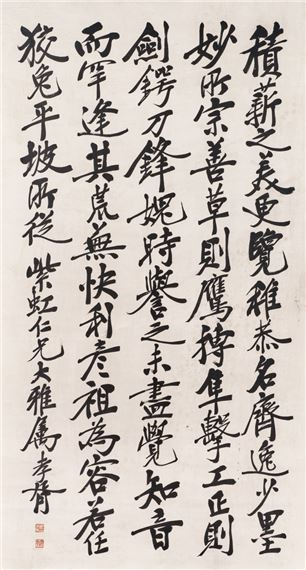 積薪之美更覽稚恭名齊逸少墨
妙所宗善草則鷹摶隼擊工正則
劍鍔刀鋒媿時譽之未盡覺知音
而罕逢其荒蕪快利彥祖為容若任
狡兔平坡所從 紫虹仁兄大雅屬 孝胥